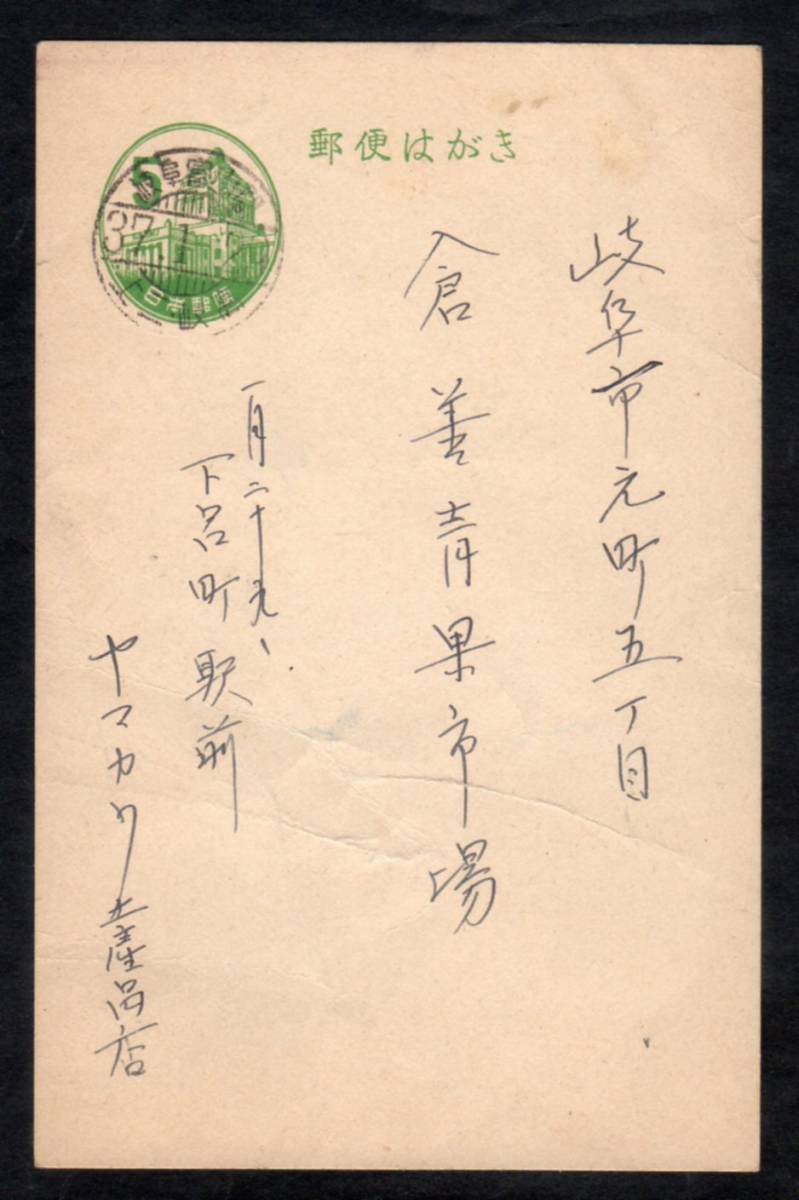 郵便はがき
5
37.1
日本郵便
岐阜市元町五丁目
倉善青果市場
一月二十九、
下呂町駅前
ヤマカワ土産品店